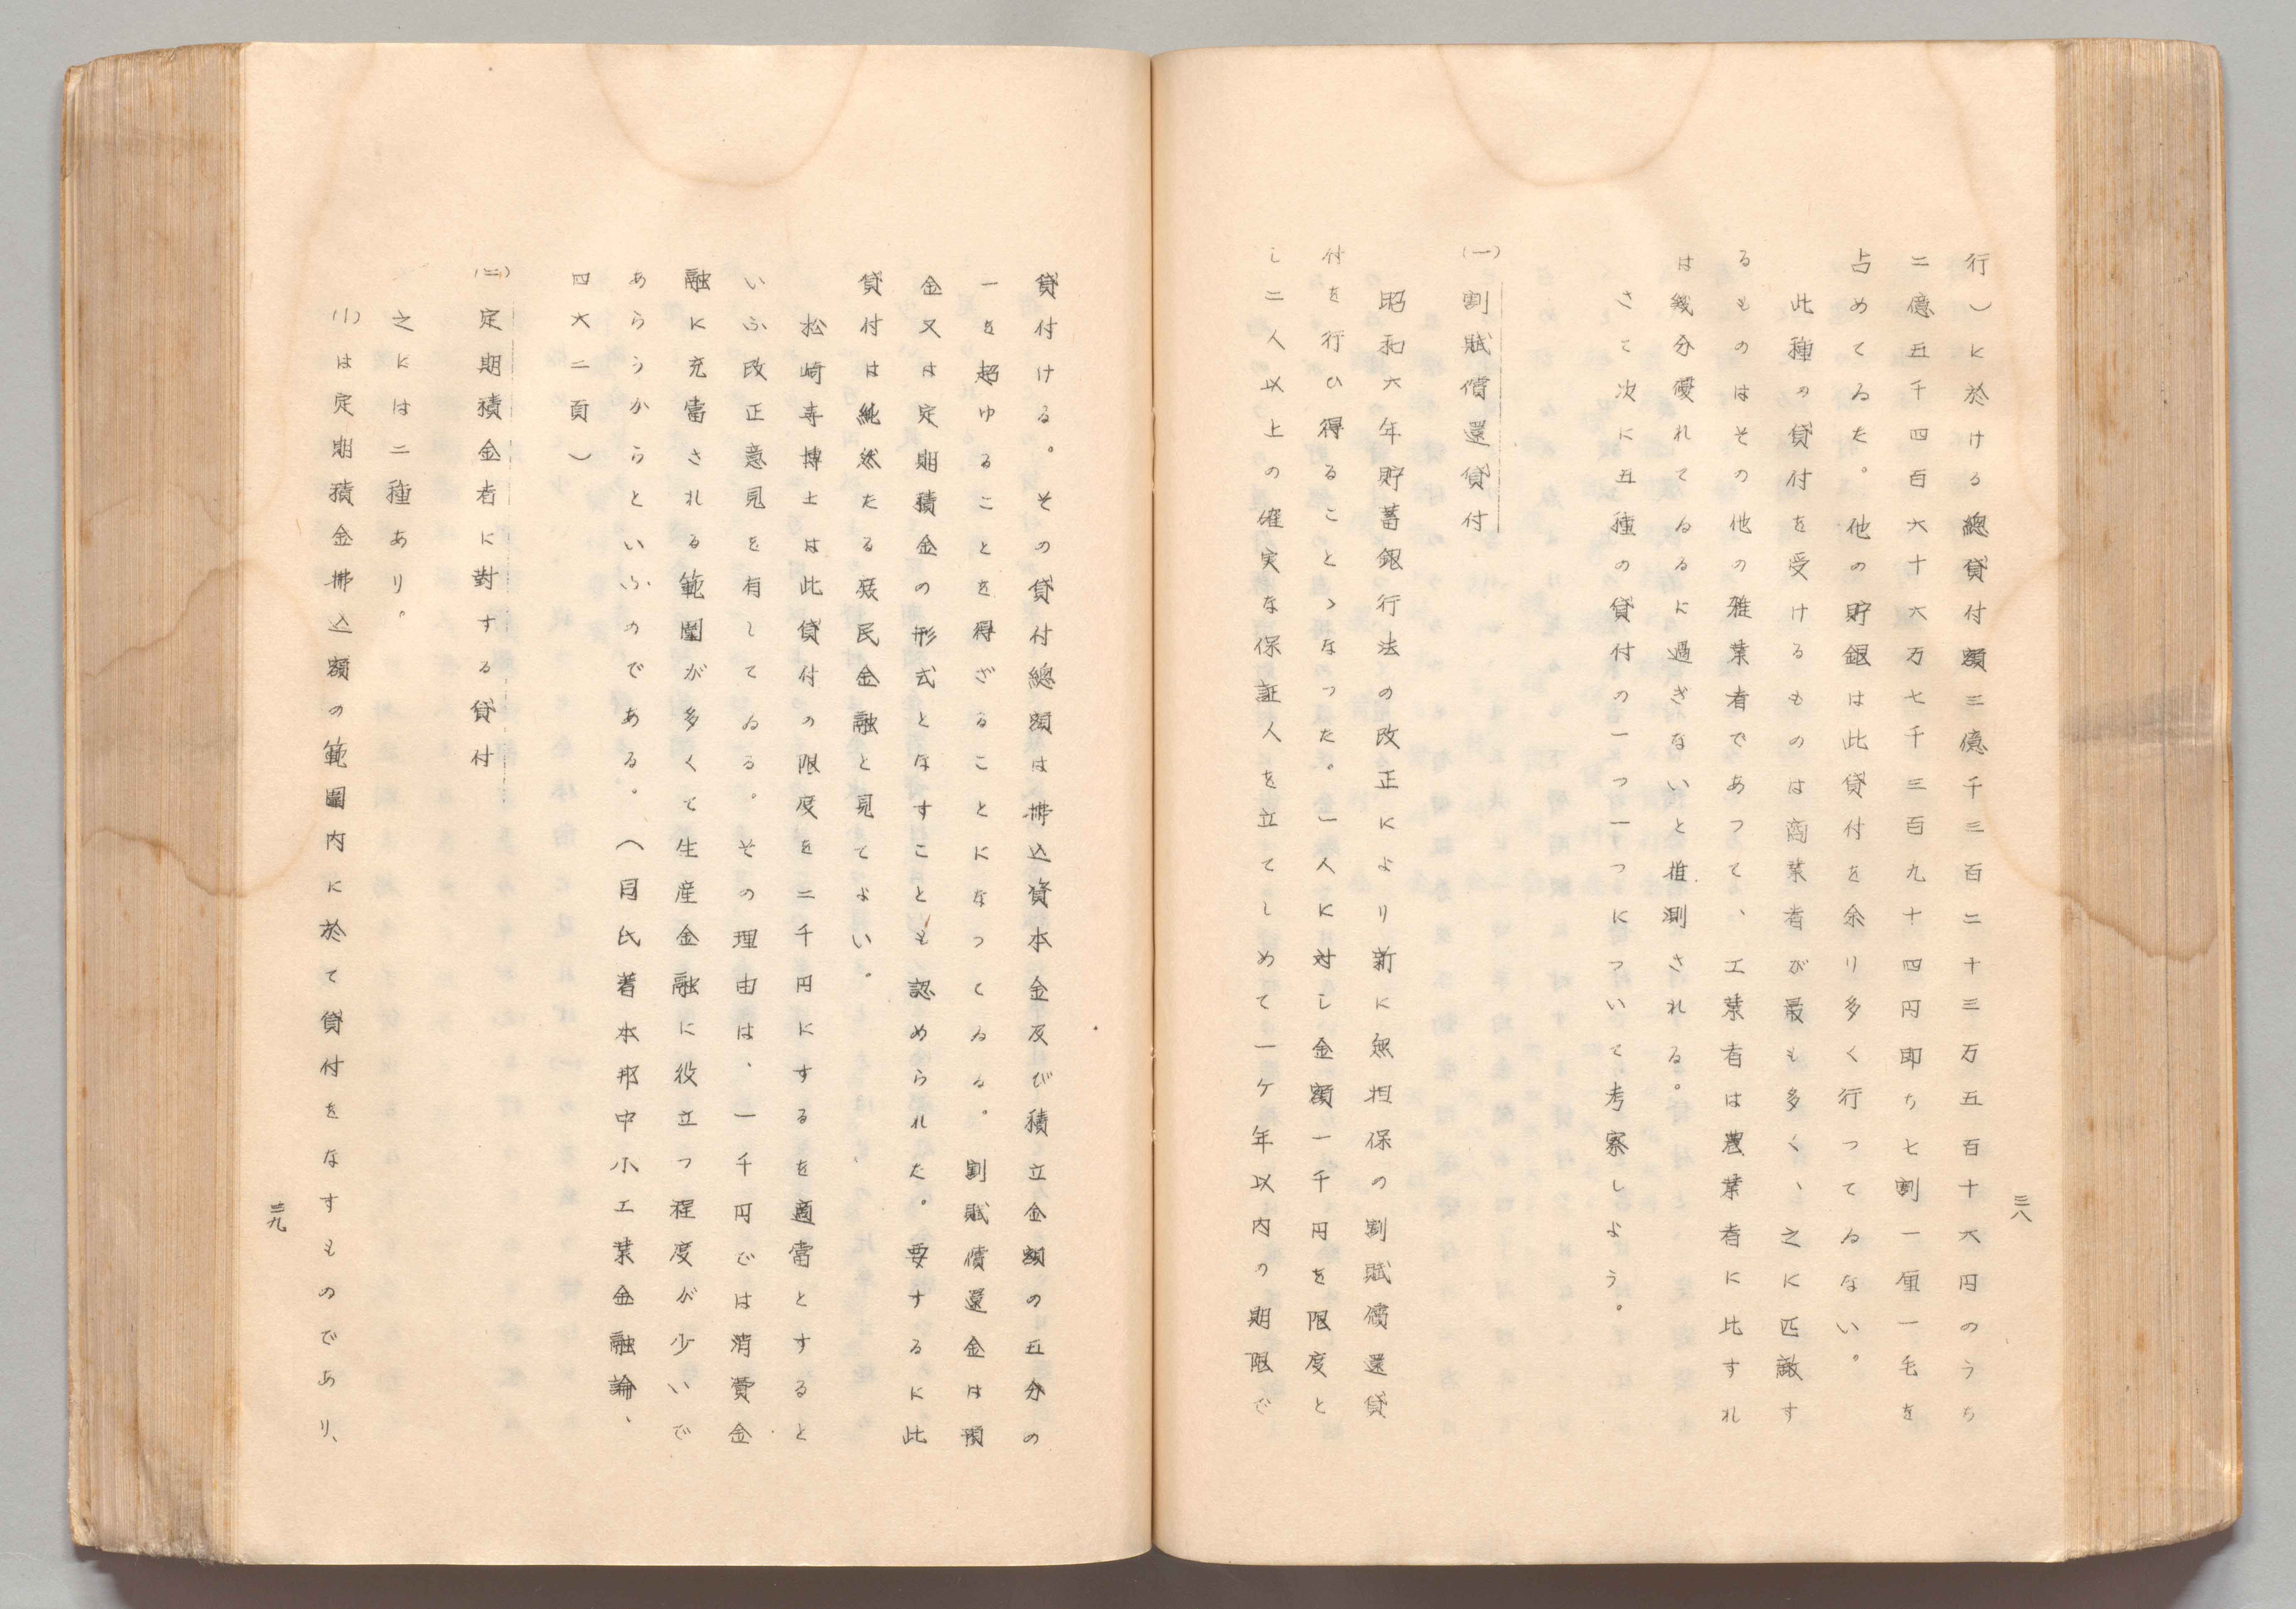 三八
行)に於ける總貸付額三億千三百二十三万五百十六円のうち
二億五千四百六十六万七千三百九十四円即ち七割一厘一毛を
占めてゐた。他の貯銀は此貸付を余り多く行つてゐない。
此種の貸付を受けるものは商業者が最も多く、之に匹敵す
るものはその他の雅業者であつて、工業者は農業者に比すれ
ば幾分優れてゐるに過ぎないと推測される。
さて次に五種の貸付の一つ一つについて考察しよう。
(一)割賦償還貸付
昭和六年貯蓄銀行法の改正により新に無担保の割賦償還貸
付を行ひ得ることゝなつた。一人に対し金額一千円を限度と
し二人以上の確実な保証人を立てしめて一ケ年以内の期限で
貸付ける。その貸付總額は拂込資本金及び積立金額の五分の
一を超ゆることを得ざることになつてゐる。割賦償還金は預
金又は定期積金の形式となすことも認められた。要するに此
貸付は純然たる庶民金融と見てよい。
松崎寿博士は此貸付の限度を二千円にするを適當とすると
いふ改正意見を有してゐる。その理由は、一千円では消費金
融に充當される範圍が多くて生産金融に役立つ程度が少いで
あらうからといふのである。(同氏著本邦中小工業金融論、
四六二頁)
(二)定期積金者に對する貸付
之には二種あり。
(1)は定期積金拂込額の範圍内に於て貸付をなすものであり、
三九